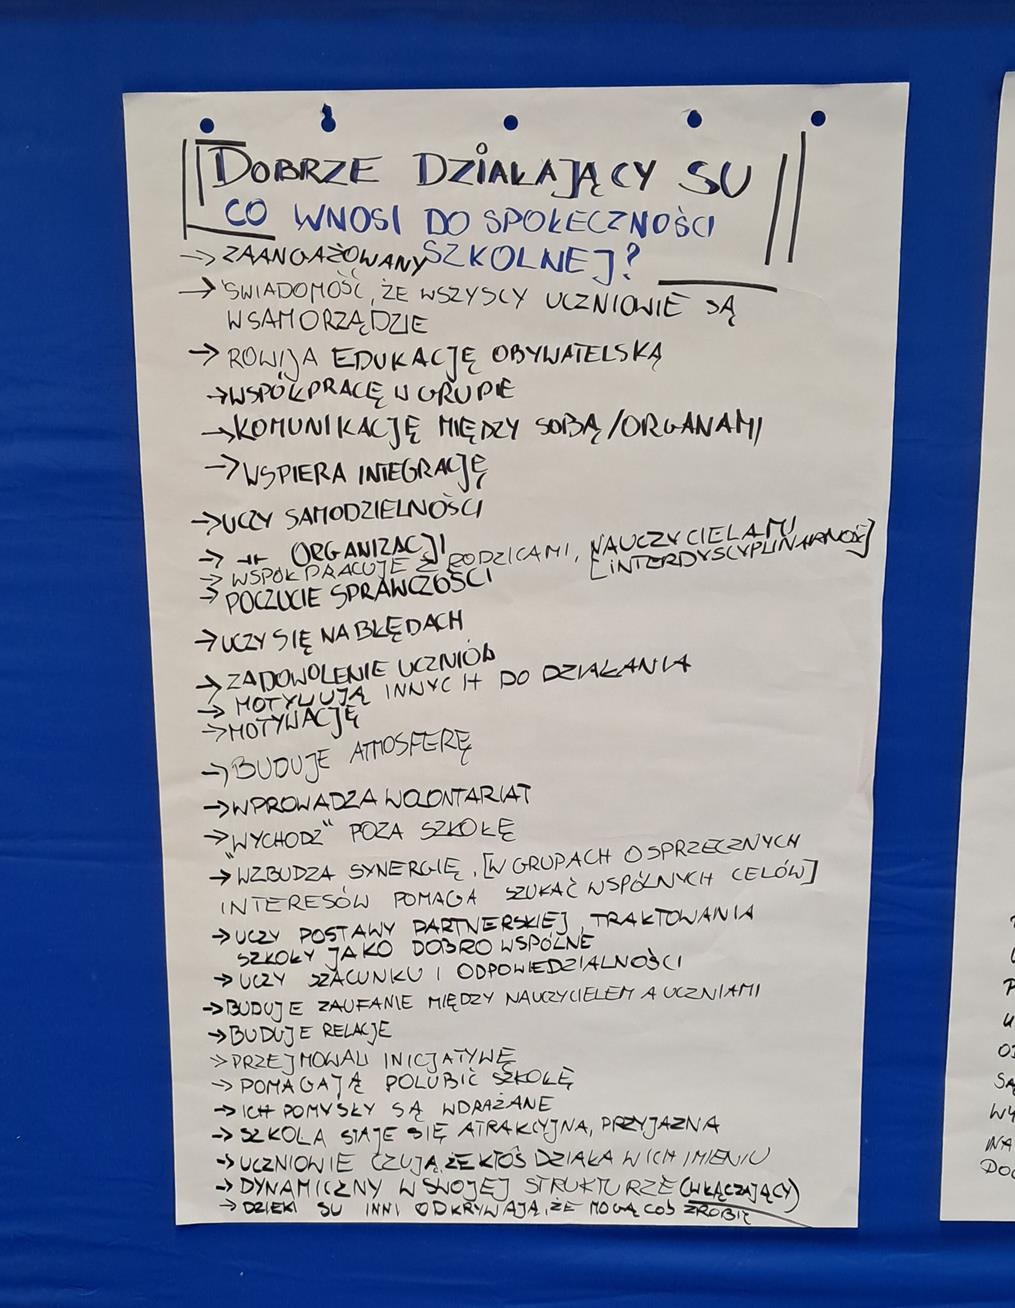 DOBRZE DZIAŁAJĄCY SU
CO WNOSI DO SPOŁECZNOŚCI
SZKOLNEJ?
→ ZAANGAŻOWANY
→ ŚWIADOMOŚĆ, ŻE WSZYSCY UCZNIOWIE SĄ
W SAMORZĄDZIE
→ ROWIJA EDUKACJĘ OBYWATELSKĄ
→ WSPÓŁPRACĘ W GRUPIE
→ KOMUNIKACJĘ MIĘDZY SOBĄ/ORGANAMI
→ WSPIERA INTEGRACJĘ
→ UCZY SAMODZIELNOŚCI
→ -ıı- ORGANIZACJI
→ WSPÓŁPRACUJE Z RODZICAMI, NAUCZYCIELAMI
[INTERDYSCYPLINARNOŚĆ]
→ POCZUCIE SPRAWCZOŚCI
→ UCZY SIĘ NA BŁĘDACH
→ ZADOWOLENIE UCZNIÓW
→ MOTYWUJĄ INNYCH DO DZIAŁANIA
→ MOTYWACJĘ
→ BUDUJE ATMOSFERĘ
→ WPROWADZA WOLONTARIAT
→ „WYCHODZ“ POZA SZKOŁĘ
→ WZBUDZA SYNERGIĘ, [W GRUPACH O SPRZECZNYCH
INTERESÓW POMAGA SZUKAĆ WSPÓLNYCH CELÓW]
→ UCZY POSTAWY PARTNERSKIEJ, TRAKTOWANIA
SZKOŁY JAKO DOBRO WSPÓLNE
→ UCZY SZACUNKU I ODPOWIEDZIALNOŚCI
→ BUDUJE ZAUFANIE MIĘDZY NAUCZYCIELEM A UCZNIAMI
→ BUDUJE RELACJE
→ PRZEJMOWALI INICJATYWĘ
→ POMAGAJĄ POLUBIĆ SZKOŁĘ
→ ICH POMYSŁY SĄ WDRAŻANE
→ SZKOŁA STAJE SIĘ ATRAKCYJNA, PRZYJAZNA
→ UCZNIOWIE CZUJĄ, ŻE KTOŚ DZIAŁA W ICH IMIENIU
→ DYNAMICZNY W SWOJEJ STRUKTURZE (WŁĄCZAJĄCY)
→ DZIEKI SU INNI ODKRYWAJĄ, ŻE MOGĄ COŚ ZROBIĆ